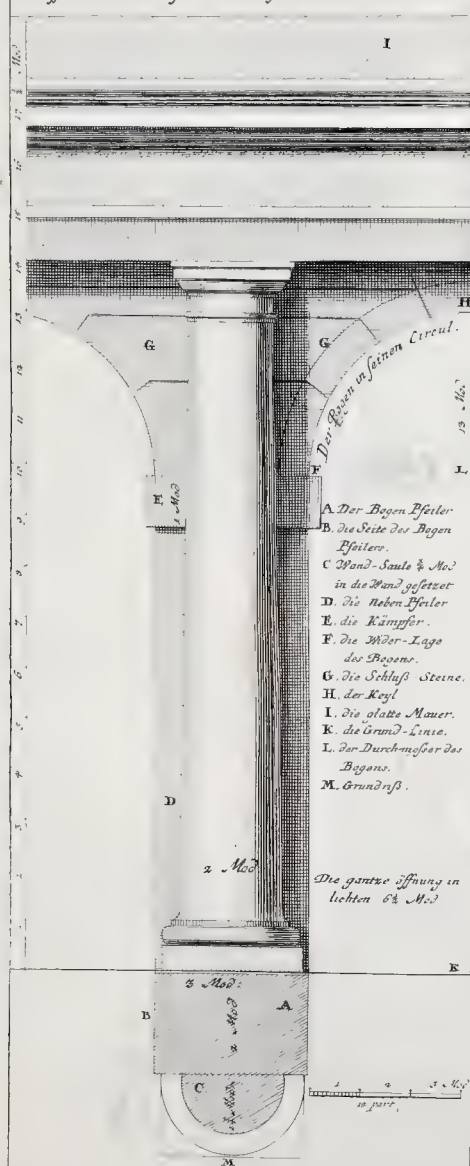 I
Mod
15
14
13
12
11
10
9
8
7
6
5
4
3
H
G
G
Der Bogen in seinen Circul.
13 Mod
L
F
E
1 Mod
A. Der Bogen Pfeiler
B. die Seite des Bogen
Pfeilers.
C Wand-Saule ¾ Mod
in die Wand gesetzet
D. die neben Pfeiler
E. die Kämpfer.
F. die Wider-Lage
des Bogens.
G. die Schluß-Steine.
H. der Keyl
I. die glatte Mauer.
K. die Grund-Linie.
L. der Durchmesser des
Bogens.
M. Grundriß.
D
2 Mod
Die gantze öffnung in
lichten 6½ Mod
K
3 Mod:
B
A
2 Mod
C
1 2 3 Mod
12 part.
M